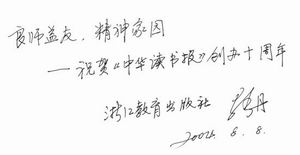 良师益友,精神家园
——祝贺《中华读书报》创办十周年
浙江教育出版社
2004. 8. 8.